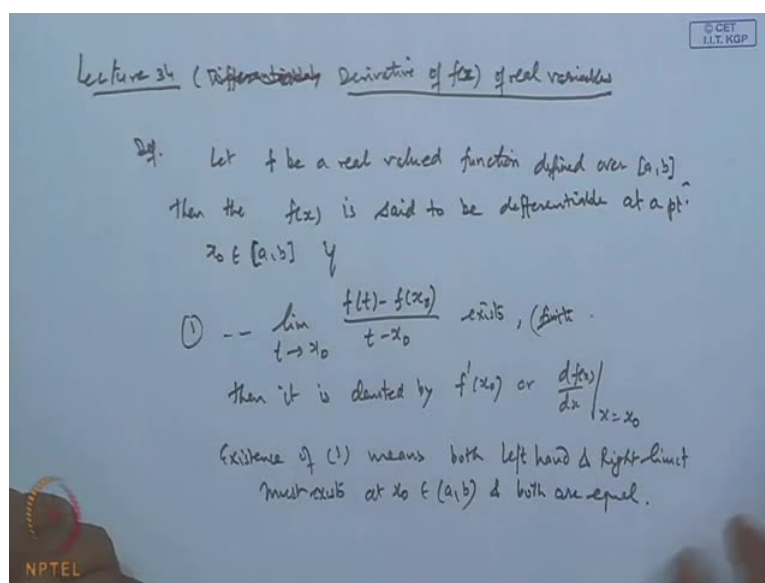 © CET
I.I.T. KGP
Lecture 34 ( Derivative of f(x) of real variables
Def. Let f be a real valued function defined over [a,b]
Then the f(x) is said to be differentiable at a pt.
x₀ ∈ [a,b] if
① -- lim t→x₀ (f(t) - f(x₀))/(t - x₀) exists, (finite .
then it is denoted by f'(x₀) or df(x)/dx |x=x₀
Existence of (1) means both left hand & Right limit
must exists at x₀ ∈ (a,b) & both are equal.
NPTEL